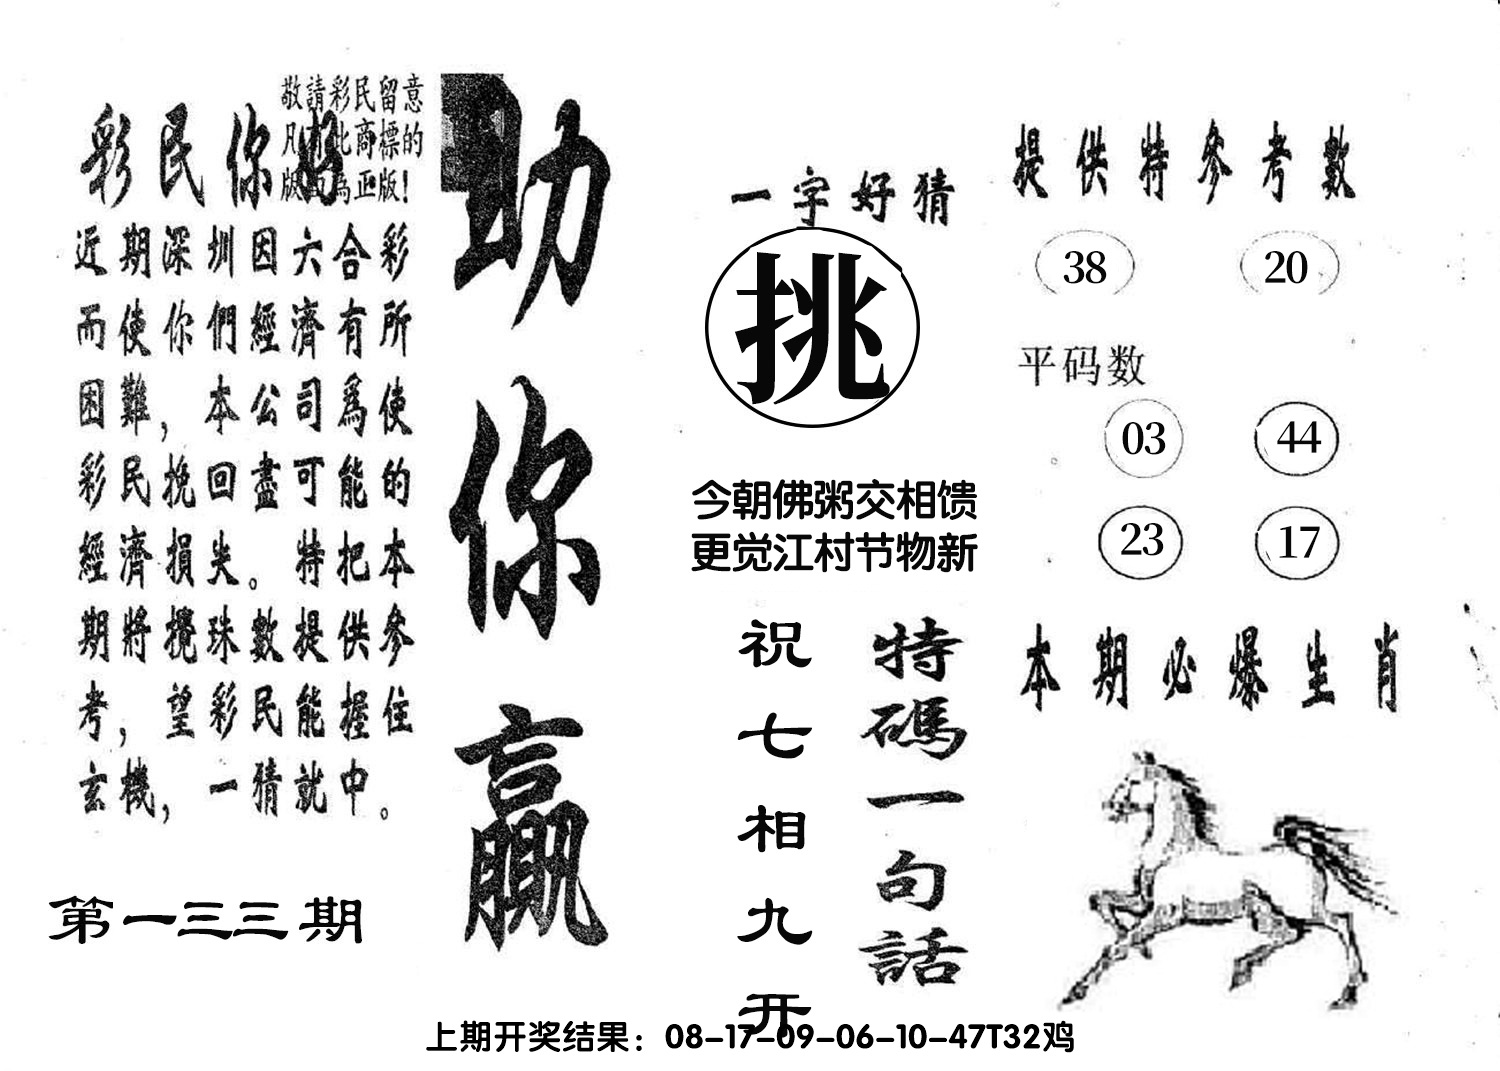 敬請彩民留意
凡有此商標的
版面為正版!
彩民你好
近期深圳因六合彩
而使你們經濟有所
困難，本公司爲使
彩民挽回盡可能的
經濟損失。特把本
期將攪珠數提供參
考，望彩民能握住
玄機，一猜就中。
第一三三期
助你贏
一字好猜
挑
今朝佛粥交相馈
更觉江村节物新
特碼一句話
祝七相九开
提供特參考數
38 20
平码数
03 44
23 17
本期必爆生肖
上期开奖结果：08-17-09-06-10-47T32鸡